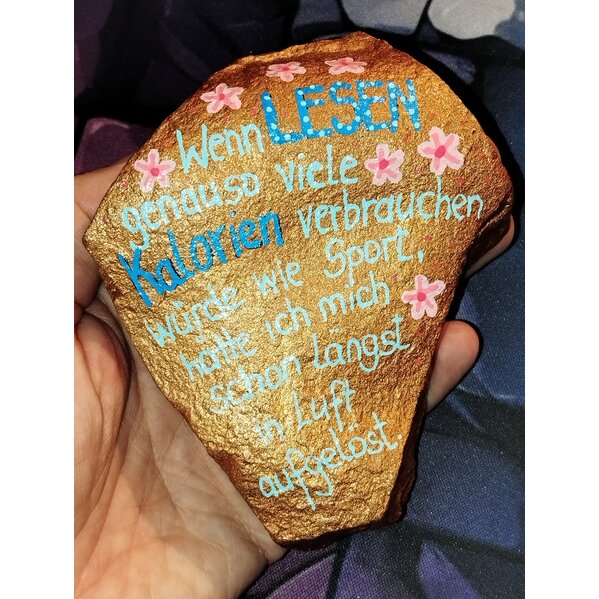 Wenn LESEN
genauso viele
Kalorien verbrauchen
würde wie Sport,
hätte ich mich
schon längst
in Luft
aufgelöst.